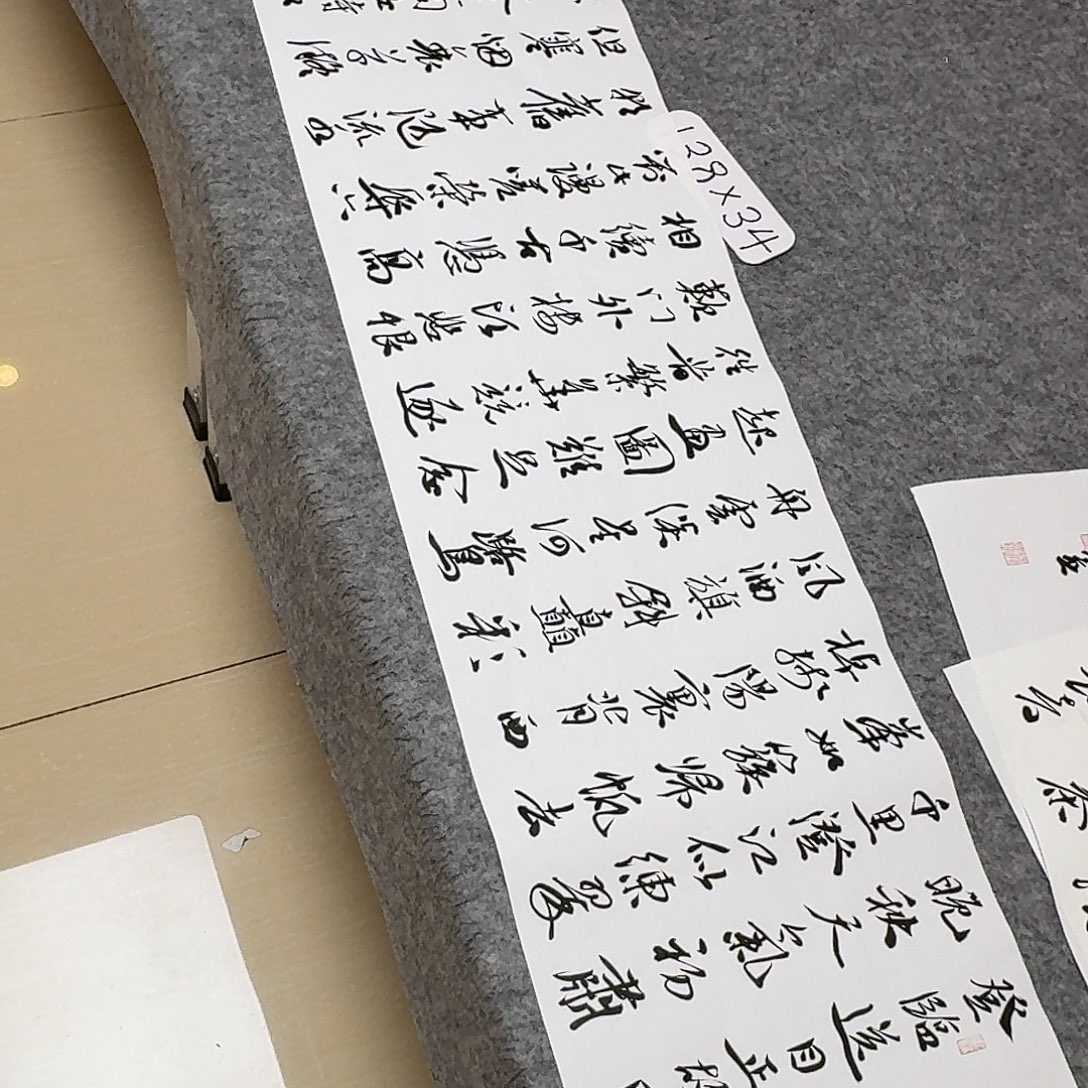 登臨送目正
晚秋天氣初肅
千里澄江似練翠
峰如簇歸帆去
棹殘陽裏背西
風酒旗斜矗彩
舟雲淡星河鷺
起畫圖難足念
往昔繁華競逐
歎门外樓頭悲恨
相續千古憑高
對此漫嗟榮辱六
朝舊事隨流水
但寒烟衰草
128×34